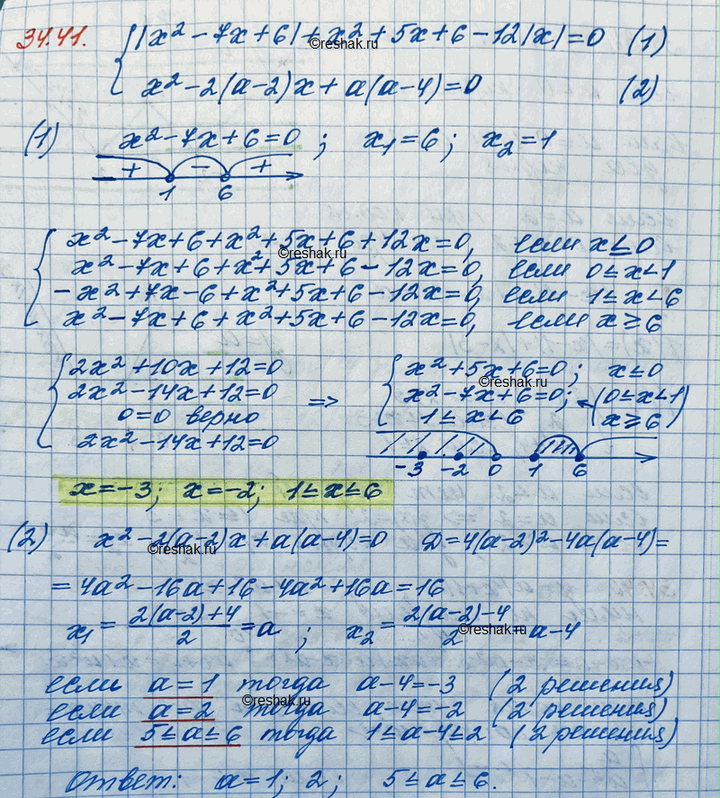 34.41. |x² - 7x + 6| + x² + 5x + 6 - 12|x| = 0 (1)
©reshak.ru
x² - 2(a-2)x + a(a-4) = 0 (2)
(1) x² - 7x + 6 = 0 ; x₁ = 6 ; x₂ = 1
+ - +
1 6
x² - 7x + 6 + x² + 5x + 6 + 12x = 0, если x ≤ 0
©reshak.ru
x² - 7x + 6 + x² + 5x + 6 - 12x = 0, если 0 ≤ x < 1
- x² + 7x - 6 + x² + 5x + 6 - 12x = 0, если 1 ≤ x < 6
x² - 7x + 6 + x² + 5x + 6 - 12x = 0, если x ≥ 6
2x² + 10x + 12 = 0
2x² - 14x + 12 = 0
0 = 0 верно
2x² - 14x + 12 = 0
=>
x² + 5x + 6 = 0 ; x ≤ 0
©reshak.ru
x² - 7x + 6 = 0 ; (0 ≤ x < 1
1 ≤ x < 6 x ≥ 6)
-3 -2 0 1 6
x = -3 ; x = -2 ; 1 ≤ x ≤ 6
(2) x² - 2(a-2)x + a(a-4) = 0 D = 4(a-2)² - 4a(a-4) =
©reshak.ru
= 4a² - 16a + 16 - 4a² + 16a = 16
x₁ = (2(a-2)+4)/2 = a ; x₂ = (2(a-2)-4)/2 = a-4
©reshak.ru
если a = 1 тогда a-4 = -3 (2 решения)
©reshak.ru
если a = 2 тогда a-4 = -2 (2 решения)
если 5 ≤ a ≤ 6 тогда 1 ≤ a-4 ≤ 2 (2 решения)
Ответ: a = 1 ; 2 ; 5 ≤ a ≤ 6.